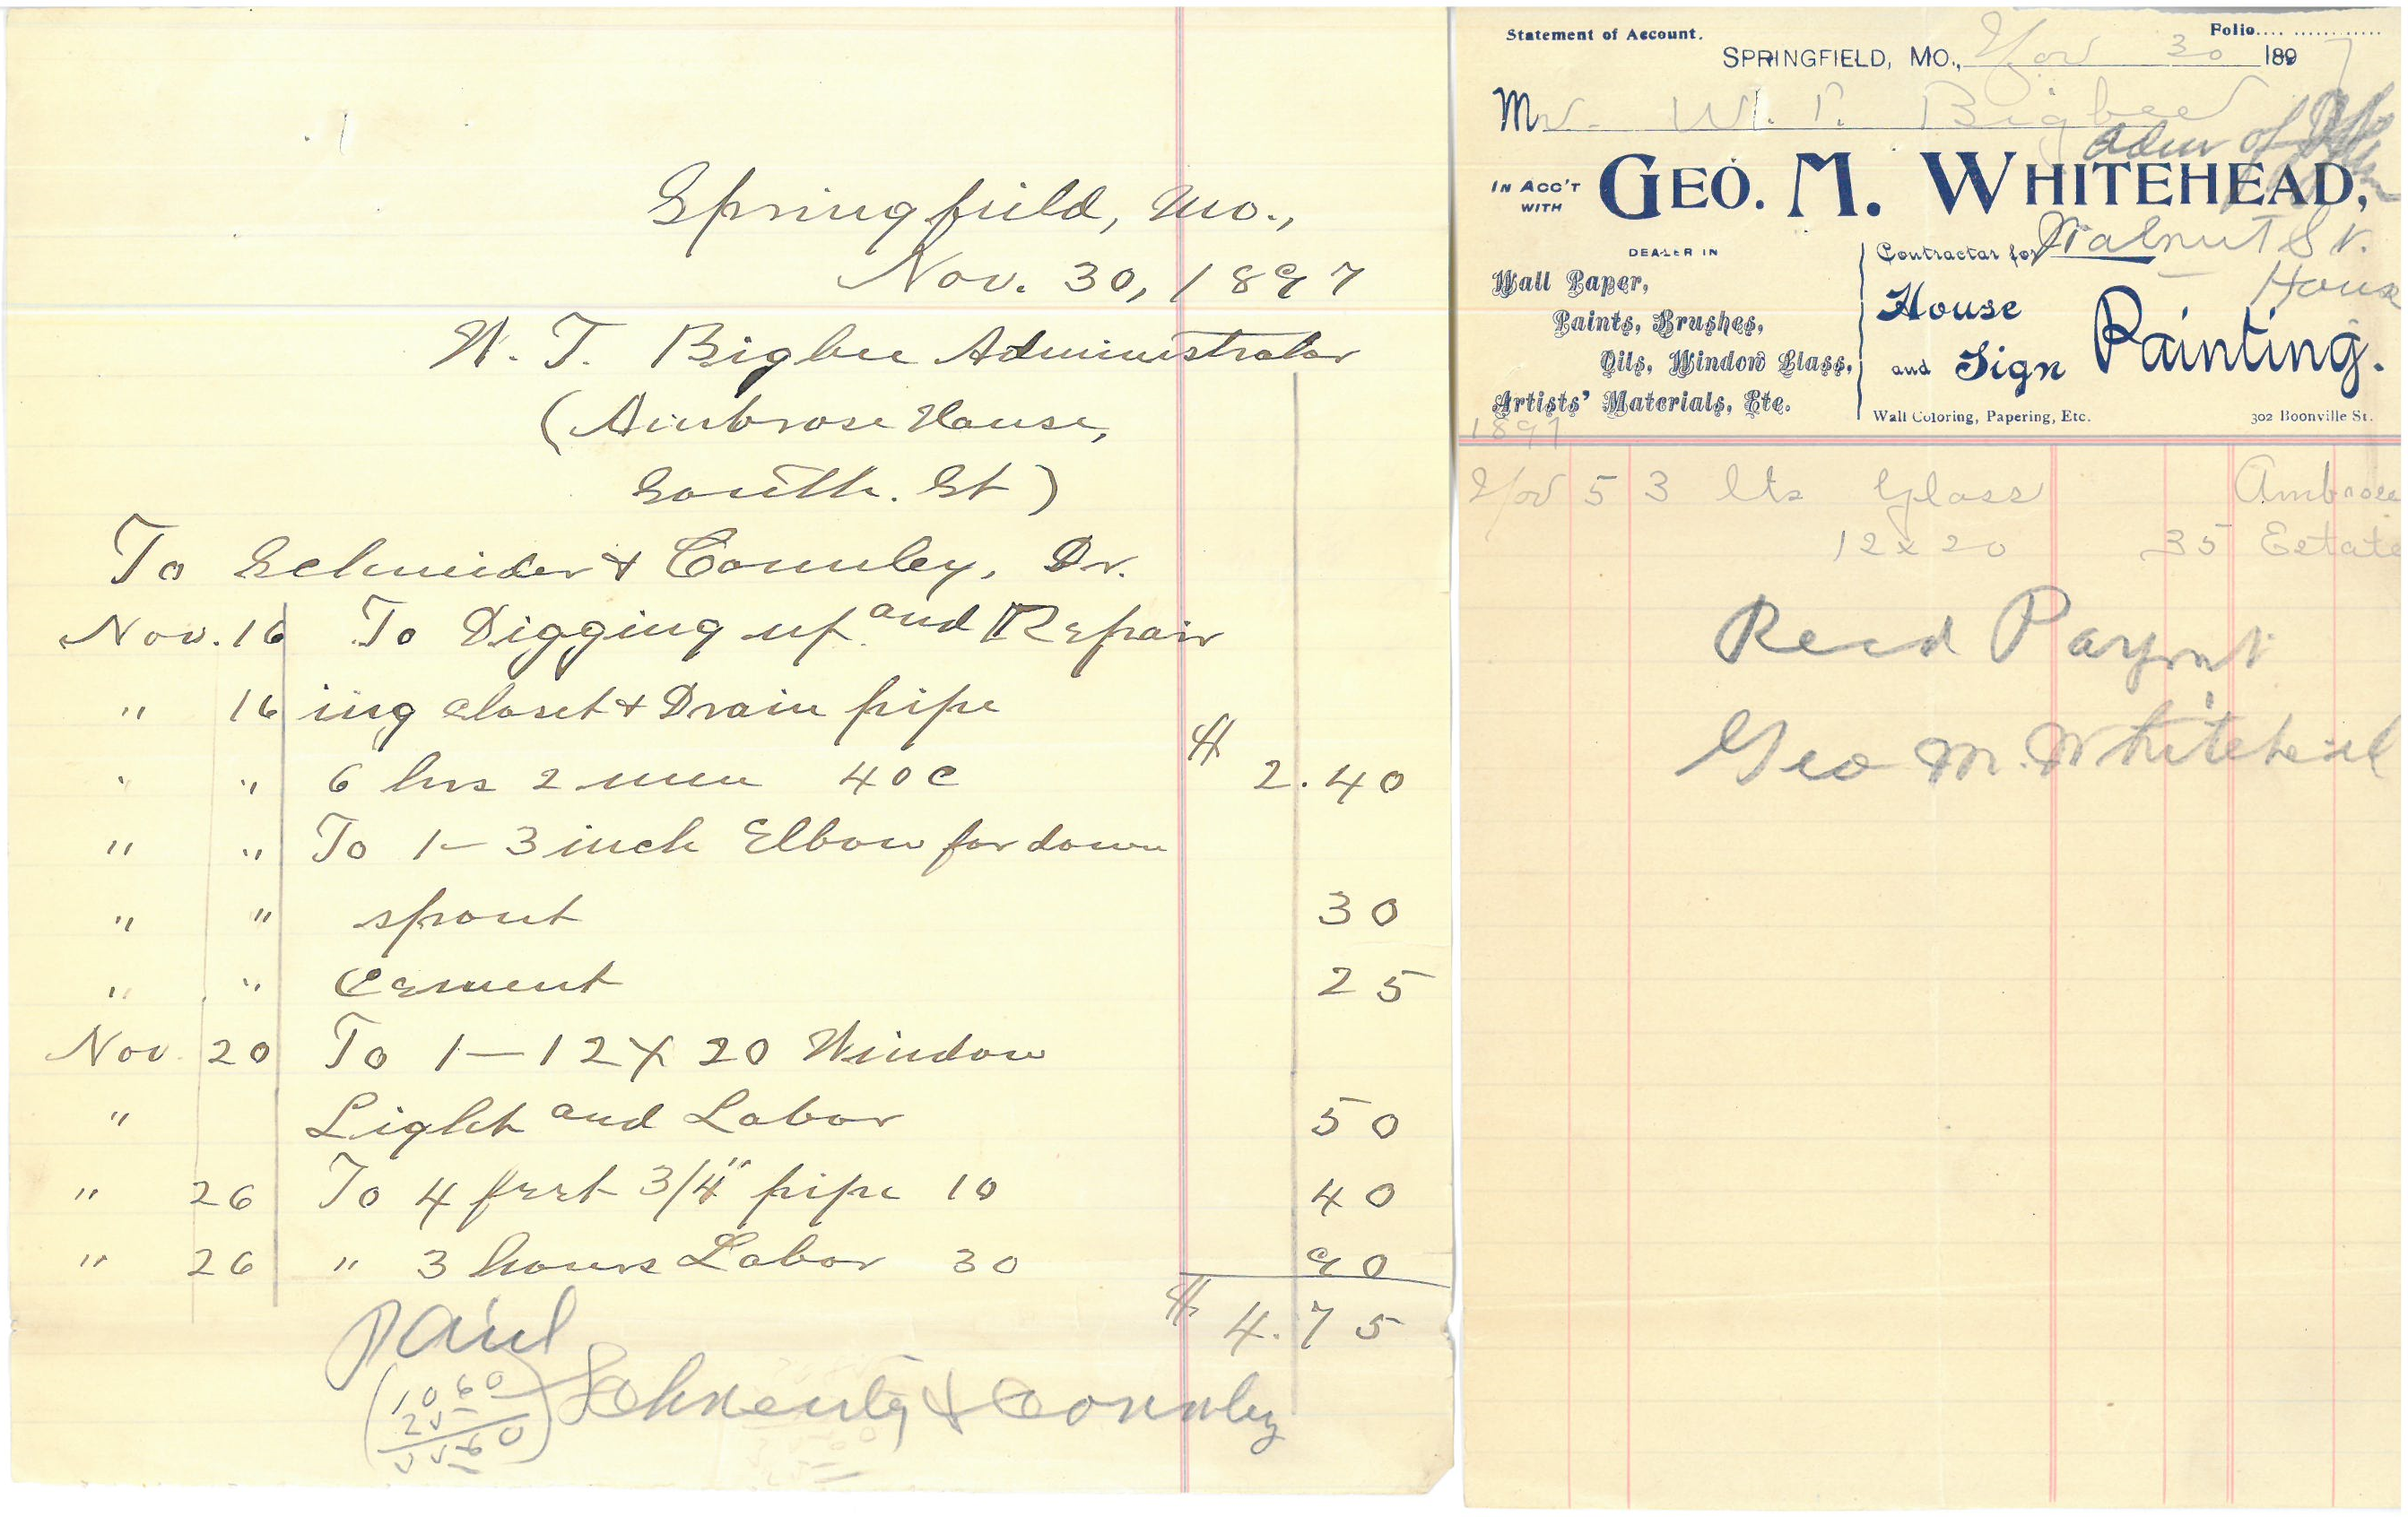 Springfield, Mo.,
Nov. 30, 1897
W. T. Bigbee Administrator
(Ambrose House,
South. St)
To Schneider & Connley, Dr.
Nov. 16 To Digging up and Repair
" 16 ing closet & Drain pipe
" " 6 hrs 2 men 40c $ 2.40
" " To 1 - 3 inch Elbow for down
" " spout 30
" " Cement 25
Nov. 20 To 1 - 12 X 20 Window
" Light and Labor 50
" 26 To 4 feet 3/4" pipe 10 40
" 26 " 3 hours Labor 30 90
$ 4.75
Paid
& Connley
Statement of Account.
Folio
SPRINGFIELD, MO., Nov 30 1897
Mr. W. T. Bigbee
Adm of
IN ACC'T WITH
GEO. M. WHITEHEAD,
Walnut St.
House
DEALER IN
Wall Paper,
Paints, Brushes,
Oils, Window Glass,
Artists' Materials, Etc.
Contractor for
House
and Sign Painting.
Wall Coloring, Papering, Etc. 302 Boonville St.
1897
Nov 5 3 lts Glass Ambrose
12 x 20 35 Estate
Recd Paymt
Geo M. Whitehead